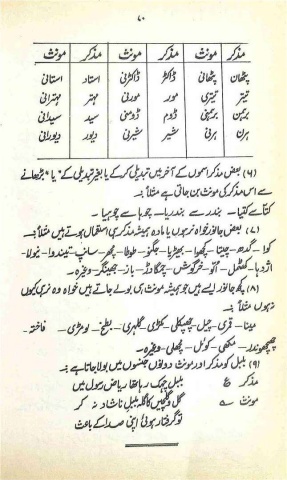 ۷۰
مذکر مونث مذکر مونث مذکر مونث
پٹھان پٹھانی ڈاکٹر ڈاکٹرنی استاد استانی
تیتر تیتری مور مورنی مہتر مہترانی
برہمن برہمنی ڈوم ڈومنی سید سیدانی
ہرن ہرنی شیر شیرنی دیور دیورانی
(۶) بعض مذکر اسموں کے آخر میں تبدیلی کرکے یا بغیر تبدیلی کے "یا" بڑھانے
سے اس مذکر کی مونث بن جاتی ہے مثلاً :۔
کتا سے کتیا ۔ بندر سے بندریا ۔ چوہا سے چوہیا ۔
(۷) بعض جانور خواہ نر ہوں یا مادہ ہمیشہ مذکر ہی استعمال ہوتے ہیں مثلاً :۔
کوا ۔ گدھ ۔ چیتا ۔ کچھوا ۔ بھیڑیا ۔ جگنو ۔ طوطا ۔ مچھر ۔ سانپ ۔ تیندوا ۔ نیولا ۔
اژدہا ۔ کھٹمل ۔ الّو ۔ خرگوش ۔ چمگادڑ ۔ باز ۔ جھینگر وغیرہ ۔
(۸) کچھ جانور ایسے ہیں جو ہمیشہ مونث ہی بولے جاتے ہیں خواہ وہ نر ہی کیوں
نہ ہوں مثلاً :۔
مینا ۔ قمری ۔ چیل ۔ چھپکلی ۔ مکڑی ۔ گلہری ۔ بطخ ۔ لومڑی ۔ فاختہ ۔
چھچھوندر ۔ مکھی ۔ کوئل ۔ مچھلی ۔ وغیرہ ۔
(۹) بلبل کو مذکر اور مونث دونوں جنسوں میں بولا جاتا ہے :۔
مذکر ع بلبل چہک رہا تھا ریاض رسول میں
مونث گل و گلچیں کا گلہ بلبل ناشاد نہ کر
تو گرفتار ہوئی اپنی صدا کے باعث